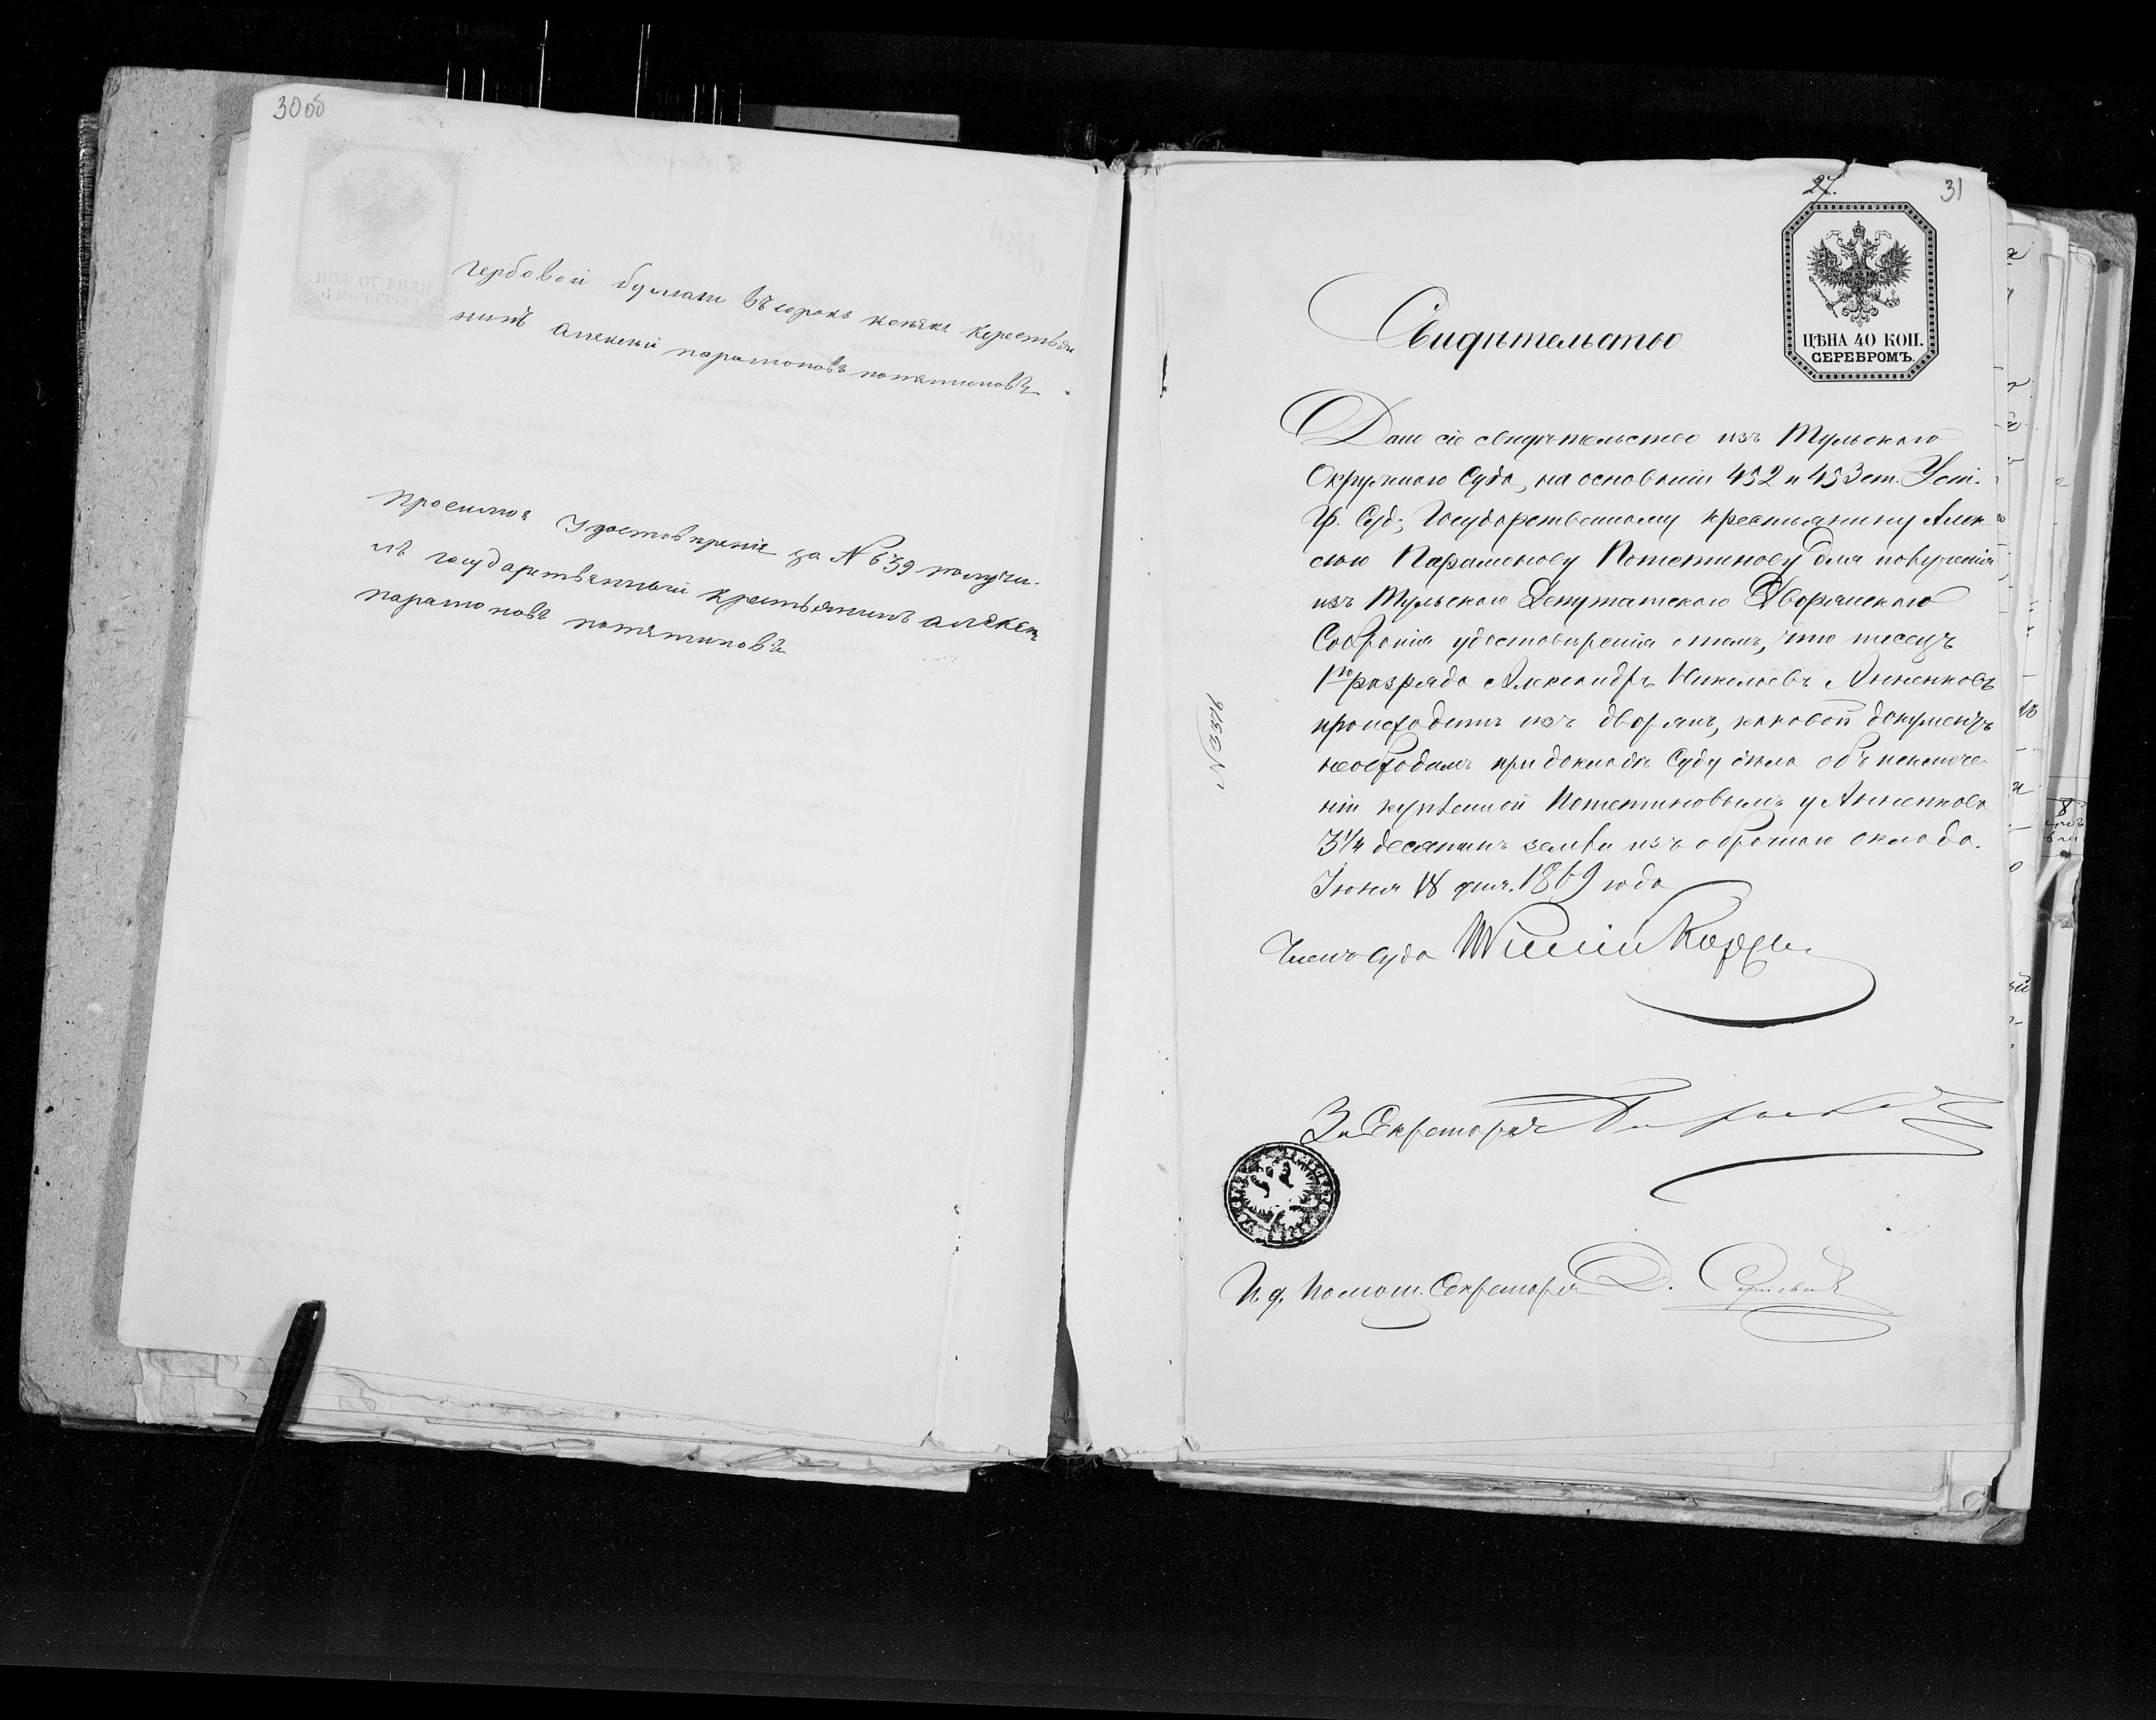 30 об
гербовой бумаги въ сорокъ копѣкъ Крестьян
нинъ алексѣй парамоновъ потѣтиновъ
Просимое Удостовѣреніе за № 639 получи-
лъ государственный крестьянинъ алексѣй
парамоновъ потѣтиновъ
27.
31
ЦѢНА 40 КОП.
СЕРЕБРОМЪ.
Свидѣтельство
Дано сіе свидѣтельство изъ Тульскаго
Окружнаго Суда, на основаніи 452 и 453 ст. Уст.
Гр. Суд; Государственному крестьянину Алек-
сѣю Парамонову Потетинову для полученія
изъ Тульскаго Депутатскаго Дворянскаго
Собранія удостовѣренія о томъ, что писецъ
1го разряда Александръ Николаевъ Анненковъ
происходитъ изъ дворянъ, каковой документъ
необходимъ при докладѣ Суду дѣла объ исключе-
ніи купленной Потетиновымъ у Анненкова
3¼ десятинъ земли изъ оброчнаго оклада.
Іюня 18 дня. 1869 года
№ 3376
Членъ Суда
За Секретаря
И д. Помощ. Секретаря Д.